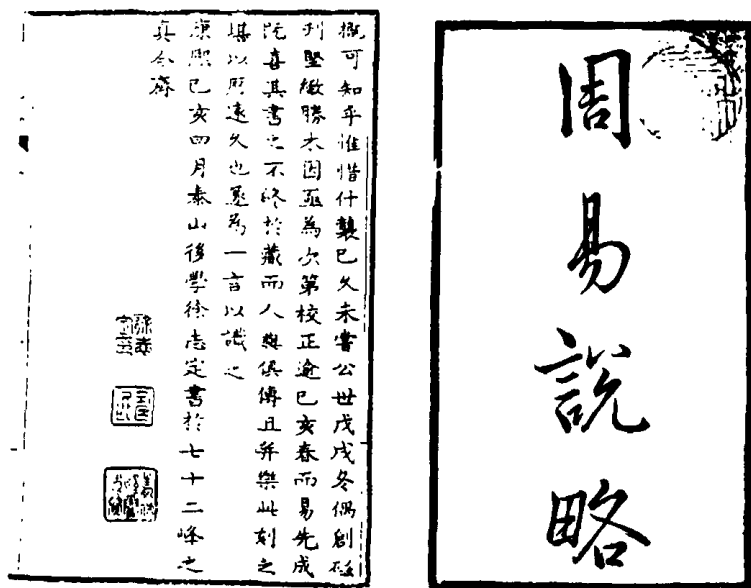 周易說略
概可知乎惟惜什襲已久未嘗公世戊戌冬偶創磁
刊堅緻勝木因亟為次第校正逾己亥春而易先成
既喜其書之不終於藏而人與俱傳且并樂此刻之
堪以歷遠久也爰為一言以識之
康熙己亥四月泰山後學徐志定書於七十二峰之
真合齋